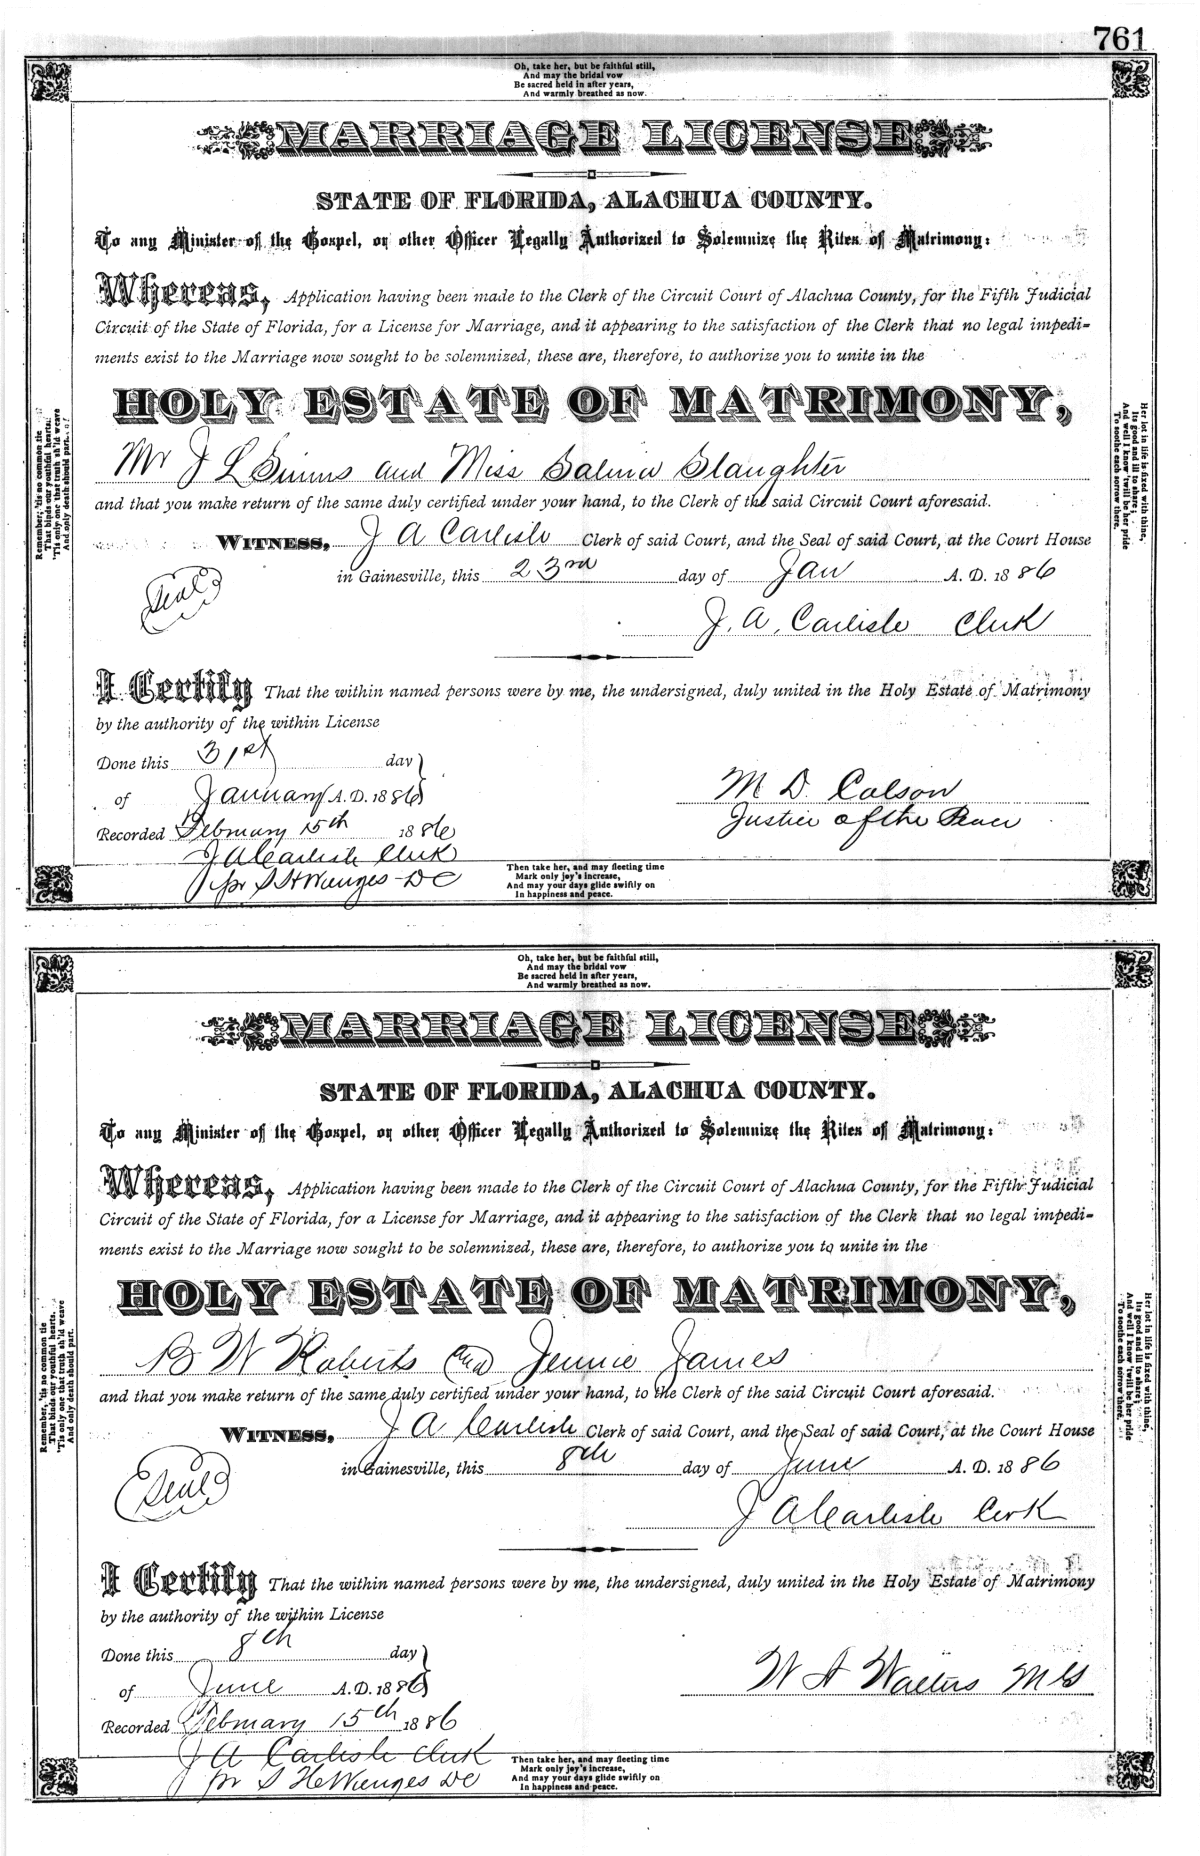 761
Oh, take her, but be faithful still,
And may the bridal vow
Be sacred held in after years,
And warmly breathed as now.
MARRIAGE LICENSE
STATE OF FLORIDA, ALACHUA COUNTY.
To any Minister of the Gospel, or other Officer Legally Authorized to Solemnize the Rites of Matrimony:
Whereas, Application having been made to the Clerk of the Circuit Court of Alachua County, for the Fifth Judicial
Circuit of the State of Florida, for a License for Marriage, and it appearing to the satisfaction of the Clerk that no legal impedi-
ments exist to the Marriage now sought to be solemnized, these are, therefore, to authorize you to unite in the
HOLY ESTATE OF MATRIMONY,
Mr J L Simms and Miss Salina Slaughter
and that you make return of the same duly certified under your hand, to the Clerk of the said Circuit Court aforesaid.
WITNESS, J A Carlisle Clerk of said Court, and the Seal of said Court, at the Court House
in Gainesville, this 23rd day of Jan A. D. 1886
Seal
J. A. Carlisle Clerk
I Certify That the within named persons were by me, the undersigned, duly united in the Holy Estate of Matrimony
by the authority of the within License
Done this 31st day
of January A.D. 1886
M D Colson
Justice of the Peace
Recorded February 15th 1886
J A Carlisle Clerk
pr S H Wienges DC
Then take her, and may fleeting time
Mark only joy's increase,
And may your days glide swiftly on
In happiness and peace.
Remember, 'tis no common tie
That binds our youthful hearts;
'Tis only one that truth sh'ld weave
And only death should part.
Her lot in life is fixed with thine,
Its good and ill to share;
And well I know 'twill be her pride
To soothe each sorrow there.
Oh, take her, but be faithful still,
And may the bridal vow
Be sacred held in after years,
And warmly breathed as now.
MARRIAGE LICENSE
STATE OF FLORIDA, ALACHUA COUNTY.
To any Minister of the Gospel, or other Officer Legally Authorized to Solemnize the Rites of Matrimony:
Whereas, Application having been made to the Clerk of the Circuit Court of Alachua County, for the Fifth Judicial
Circuit of the State of Florida, for a License for Marriage, and it appearing to the satisfaction of the Clerk that no legal impedi-
ments exist to the Marriage now sought to be solemnized, these are, therefore, to authorize you to unite in the
HOLY ESTATE OF MATRIMONY,
B W Roberts and Jennie James
and that you make return of the same duly certified under your hand, to the Clerk of the said Circuit Court aforesaid.
WITNESS, J A Carlisle Clerk of said Court, and the Seal of said Court, at the Court House
in Gainesville, this 8th day of June A. D. 1886
Seal
J A Carlisle Clerk
I Certify That the within named persons were by me, the undersigned, duly united in the Holy Estate of Matrimony
by the authority of the within License
Done this 8th day
of June A.D. 1886
W A Walters M G
Recorded February 15th 1886
J A Carlisle Clerk
pr S H Wienges DC
Then take her, and may fleeting time
Mark only joy's increase,
And may your days glide swiftly on
In happiness and peace.
Remember, 'tis no common tie
That binds our youthful hearts.
'Tis only one that truth sh'ld weave
And only death should part.
Her lot in life is fixed with thine,
Its good and ill to share;
And well I know 'twill be her pride
To soothe each sorrow there.